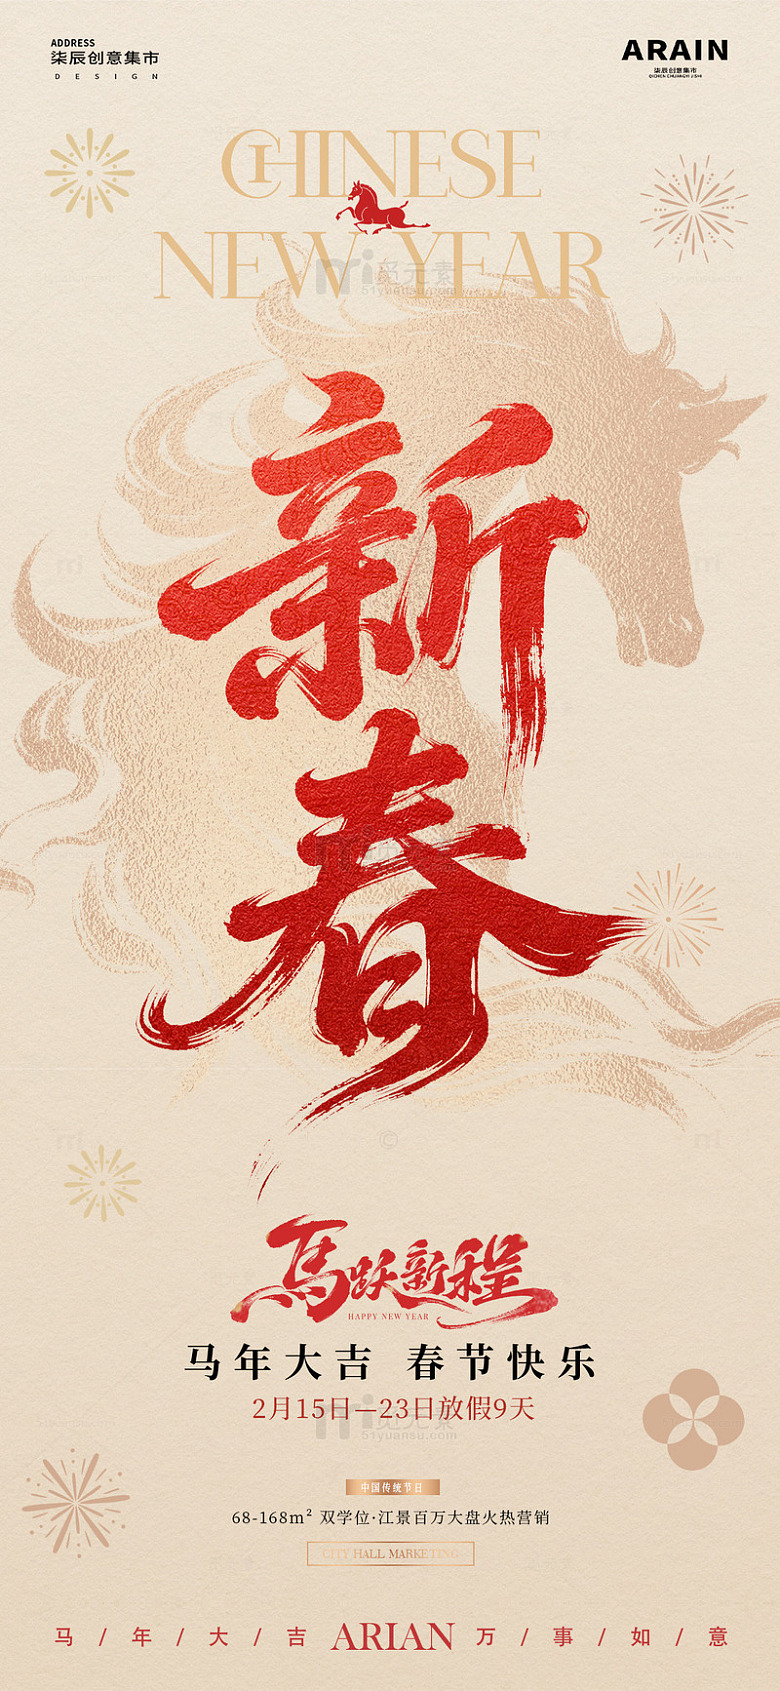 ADDRESS
柒辰创意集市
DESIGN
ARAIN
柒辰创意集市
QICHEN CHUANGYI JISHI
CHINESE
NEW YEAR
觅元素
51yuansu.com
新
春
马跃新程
HAPPY NEW YEAR
马年大吉 春节快乐
2月15日—23日放假9天
觅元素
51yuansu.com
中国传统节日
68-168m² 双学位·江景百万大盘火热营销
CITY HALL MARKETING
马 / 年 / 大 / 吉 ARIAN 万 / 事 / 如 / 意